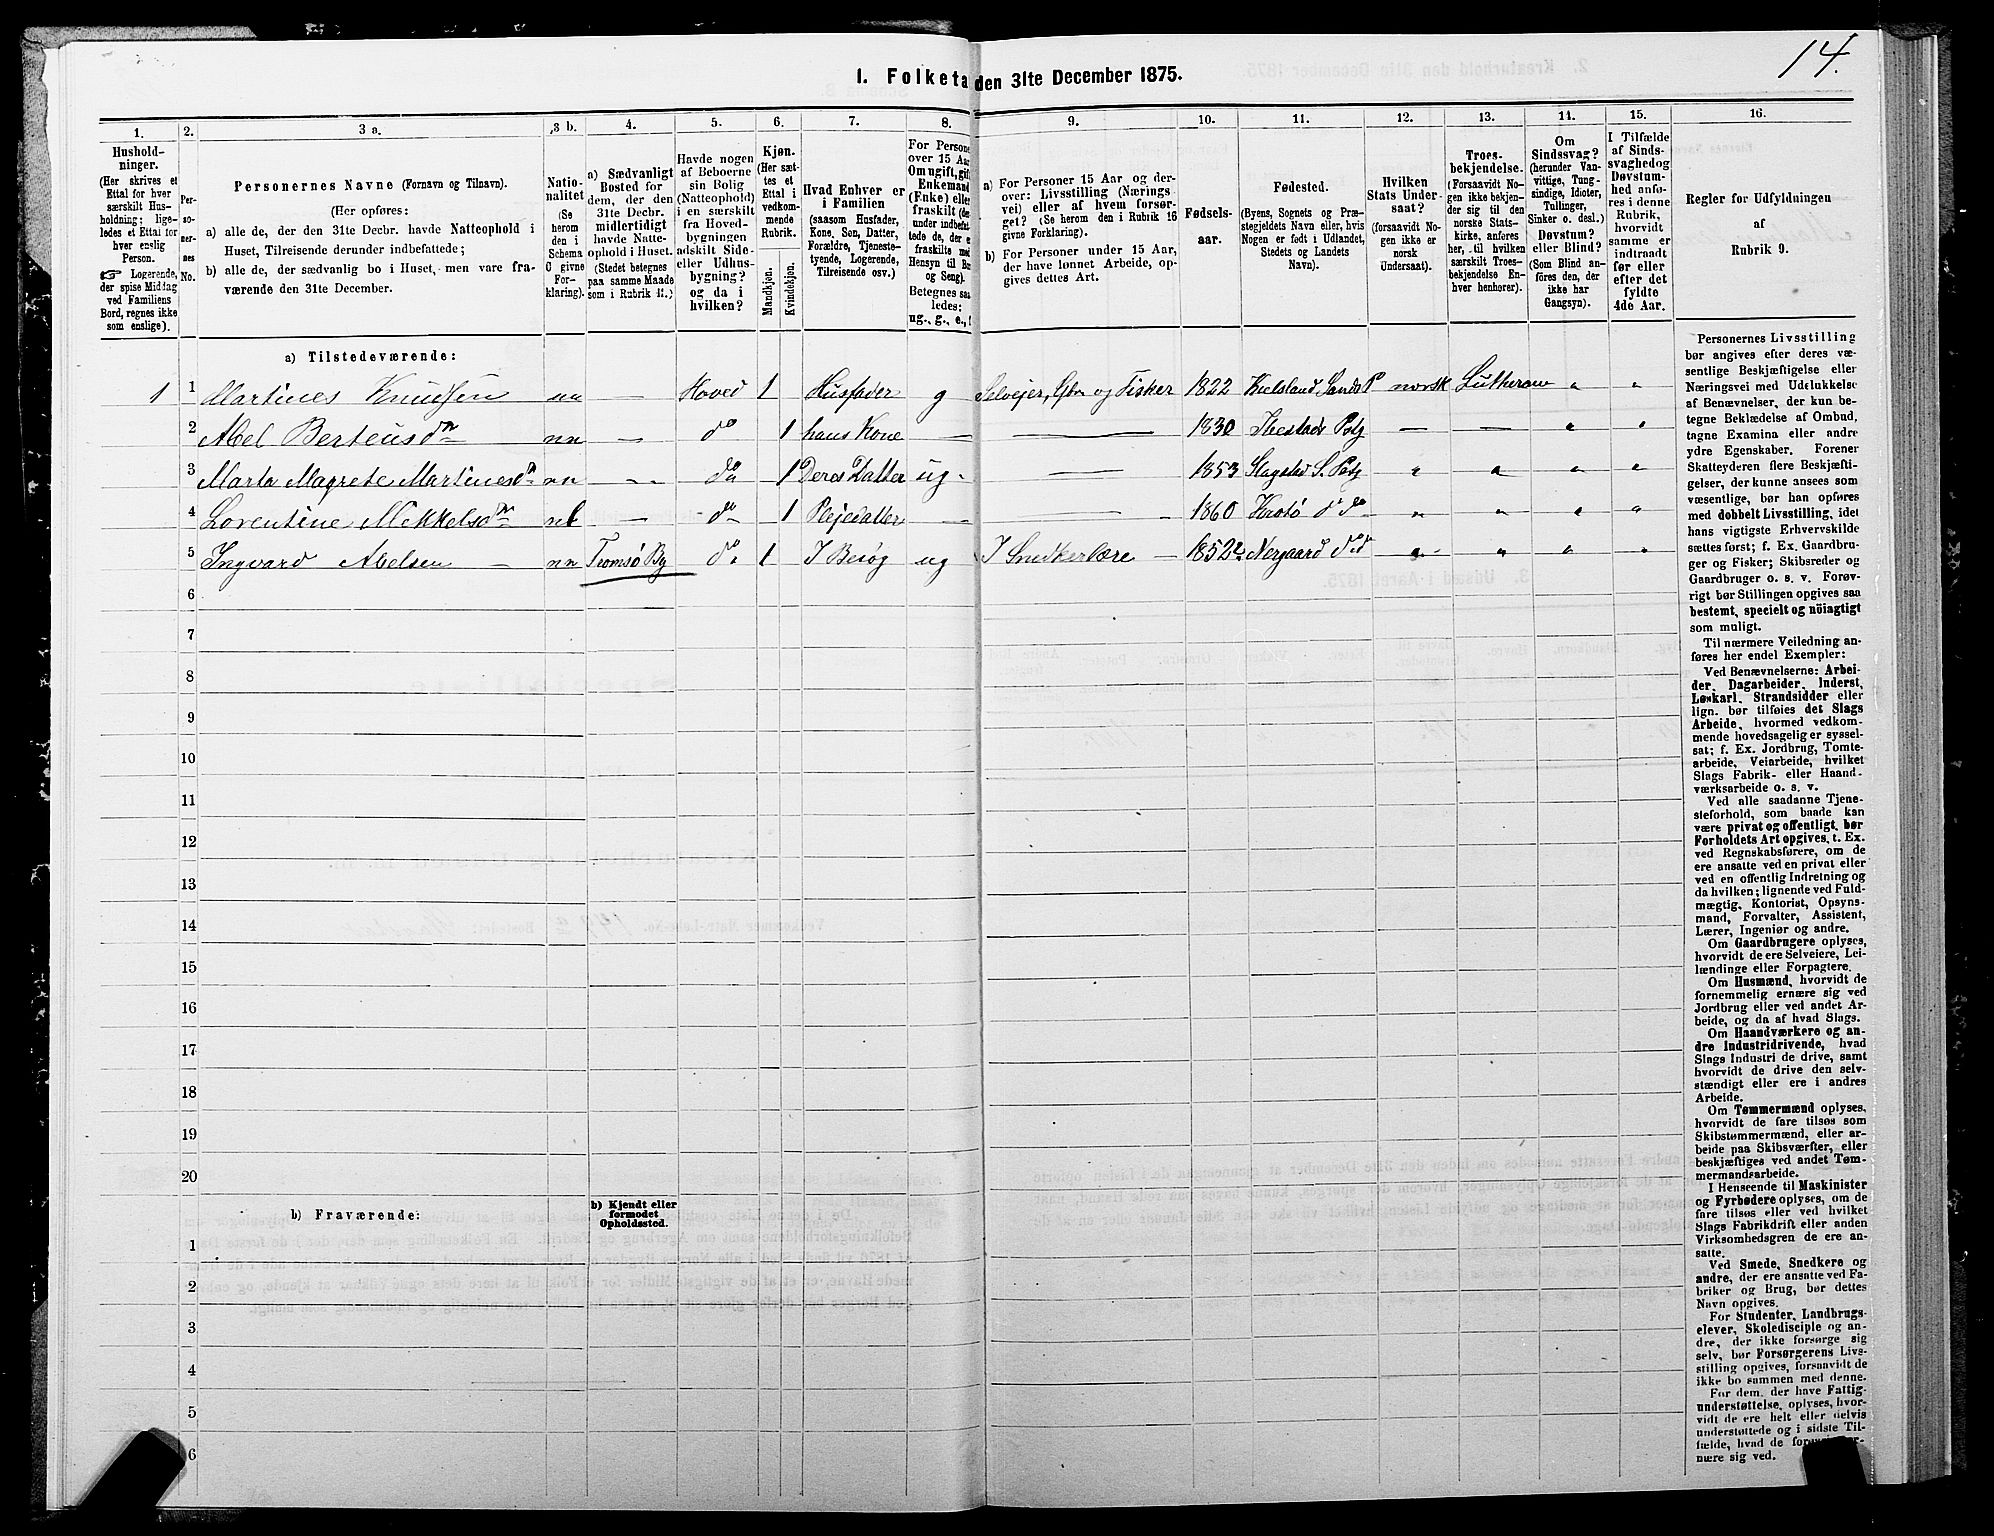 14.
1. Folketa den 31te December 1875.
1. 2. 3 a. 3 b. 4. 5. 6. 7. 8. 9. 10. 11. 12. 13. 14. 15. 16.
Hushold-
ninger.
(Her skrives et
Ettal for hver
særskilt Hus-
holdning; lige-
ledes et Ettal for
hver enslig
Person.
☞ Logerende,
der spise Middag
ved Familiens
Bord, regnes ikke
som enslige).
Per-
so-
ner-
nes
No.
Personernes Navne (Fornavn og Tilnavn).
(Her opføres:
a) alle de, der den 31te Decbr. havde Natteophold i
Huset, Tilreisende derunder indbefattede;
b) alle de, der sædvanlig bo i Huset, men vare fra-
værende den 31te December.
Natio-
nalitet
(Se
herom
den i
Schema
givne
For-
klaring).
a) Sædvanligt
Bosted for
dem, der den
31te Decbr.
midlertidigt
havde Natte-
ophold i Huset.
(Stedet betegnes
paa samme Maade
som i Rubrik 11.)
Havde nogen
af Beboerne
sin Bolig
(Natteophold)
i en særskilt
fra Hoved-
bygningen
adskilt Side-
eller Udhus-
bygning?
og da i
hvilken?
Kjøn.
(Her sæt-
tes et
Ettal i
vedkom-
mende
Rubrik.
Mandkjøn.
Kvindekjøn.
Hvad Enhver er
i Familien
(saasom Husfader,
Kone, Søn, Datter,
Forældre, Tjeneste-
tyende, Logerende,
Tilreisende osv.)
For Persone
over 15 Aar
Om ugift, gift
Enkemand
(Enke) eller
fraskilt (de
under indbefat
tede de, der e
fraskilte med
Hensyn til Bo
og Seng).
Betegnes saa
ledes:
ug., g., e.,
a) For Personer 15 Aar og der-
over: Livsstilling (Nærings
vei) eller af hvem forsør-
get? (Se herom den i Rubrik 16
givne Forklaring).
b) For Personer under 15 Aar,
der have lønnet Arbeide, op-
gives dettes Art.
Fødsels-
aar.
Fødested.
(Byens, Sognets og Præ-
stegjeldets Navn eller, hvis
Nogen er født i Udlandet,
Stedets og Landets
Navn).
Hvilken
Stats Under-
saat?
(forsaavidt No-
gen ikke er
norsk
Undersaat).
Troes-
bekjendelse.
(Forsaavidt No-
gen ikke bekjen-
der sig til den
norske Stats-
kirke, anføres
her, til hvilken
særskilt Troes-
bekjendelse En-
hver henhører).
Om
Sindssvag?
(herunder Van-
vittige, Tung-
sindige, Idioter,
Tullinger,
Sinker o. desl.)
Døvstum?
eller Blind?
(Som Blind an-
føres den, der
ikke har
Gangsyn).
I Tilfælde
af Sinds-
svaghedog
Døvstum-
hed anfø-
res i denne
Rubrik,
hvorvidt
samme er
indtraadt
før eller
efter det
fyldte
4de Aar.
Regler for Udfyldningen
af
Rubrik 9.
a) Tilstedeværende:
1 1 Martines Knudsen nn — Hoved 1 Husfader g Selvejer, Gbr og Fisker 1822 Sands P norsk Lutheran " "
2 Abel Berteusdn nn — do 1 hans Kone — — 1830 Ibestads Pstg — — " "
3 Marta Magrete Martinesdn nn — do 1 Deres Datter ug. — 1853 " " " "
4 Lorentine Mekkelsdn — do 1 Plejedatter — — 1860 Krotø do do " " " "
5 Ingvard Abelsen — nn Tromsø By do 1 I Besøg ug I Snedkerlære — 1852 Nergaard do do " " " "
6
7
8
9
10
11
12
13
14
15
16
17
18
19
20
b) Fraværende:
b) Kjendt eller
formodet
Opholdssted.
1
2
3
4
5
6
Personernes Livsstilling
bør angives efter deres væ-
sentlige Beskjæftigelse eller
Næringsvei med Udelukkelse
af Benævnelser, der kun be-
tegne Beklædelse af Ombud,
tagne Examina eller andre
ydre Egenskaber. Forener
Skatteyderen flere Beskjæfti-
gelser, der kunne ansees som
væsentlige, bør han opføres
med dobbelt Livsstilling, idet
hans vigtigste Erhvervskilde
sættes først; f. Ex. Gaardbru-
ger og Fisker; Skibsreder og
Gaardbruger o. s. v. Forøv-
rigt bør Stillingen opgives saa
bestemt, specielt og nöiagtigt
som muligt.
Til nærmere Veiledning an-
føres her endel Exempler:
Ved Benævnelserne: Arbei-
der, Dagarbeider, Inderst,
Løskarl, Strandsidder eller
lign. bør tilføies det Slags
Arbeide, hvormed vedkom-
mende hovedsagelig er syssel-
sat; f. Ex. Jordbrug, Tomte-
arbeide, Veiarbeide, hvilket
Slags Fabrik- eller Haand-
værksarbeide o. s. v.
Ved alle saadanne Tjene-
steforhold, som baade kan
være privat og offentligt, bør
Forholdets Art opgives, t. Ex.
ved Regnskabsførere, om de
ere ansatte ved en privat eller
ved en offentlig Indretning og
da hvilken; lignende ved Fuld-
mægtig, Kontorist, Opsyns-
mand, Forvalter, Assistent,
Lærer, Ingeniør og andre.
Om Gaardbrugere oplyses,
hvorvidt de ere Selveiere, Lei-
lændinge eller Forpagtere.
Om Husmænd, hvorvidt de
fornemmelig ernære sig ved
Jordbrug eller ved andet Ar-
beide, og da af hvad Slags.
Om Haandværkere og an-
dre Industridrivende, hvad
Slags Industri de drive, samt
hvorvidt de drive den selv-
stændigt eller ere i andres
Arbeide.
Om Tømmermænd oplyses,
hvorvidt de fare tilsøs som
Skibstømmermænd, eller ar-
beide paa Skibsværfter, eller
beskjæftiges ved andet Tøm-
mermandsarbeide.
I Henseende til Maskinister
og Fyrbødere oplyses, om de
fare tilsøs eller ved hvilket
Slags Fabrikdrift eller anden
Virksombedsgren de ere an-
satte.
Ved Smede, Snedkere og
andre, der ere ansatte ved Fa-
briker og Brug, bør dettes
Navn opgives.
For Studenter, Landbrugs-
elever, Skoledisciple og an-
dre, der ikke forsørge sig
selv, bør Forsørgerens Livs-
stilling opgives, forsaavidt de
ikke bo sammen med denne.
For dem, der have Fattig-
understøttelse, oplyses, hvor-
vidt de ere helt eller delvis
understøttede og i sidste Til-
fælde, hvad de
nære sig ved.